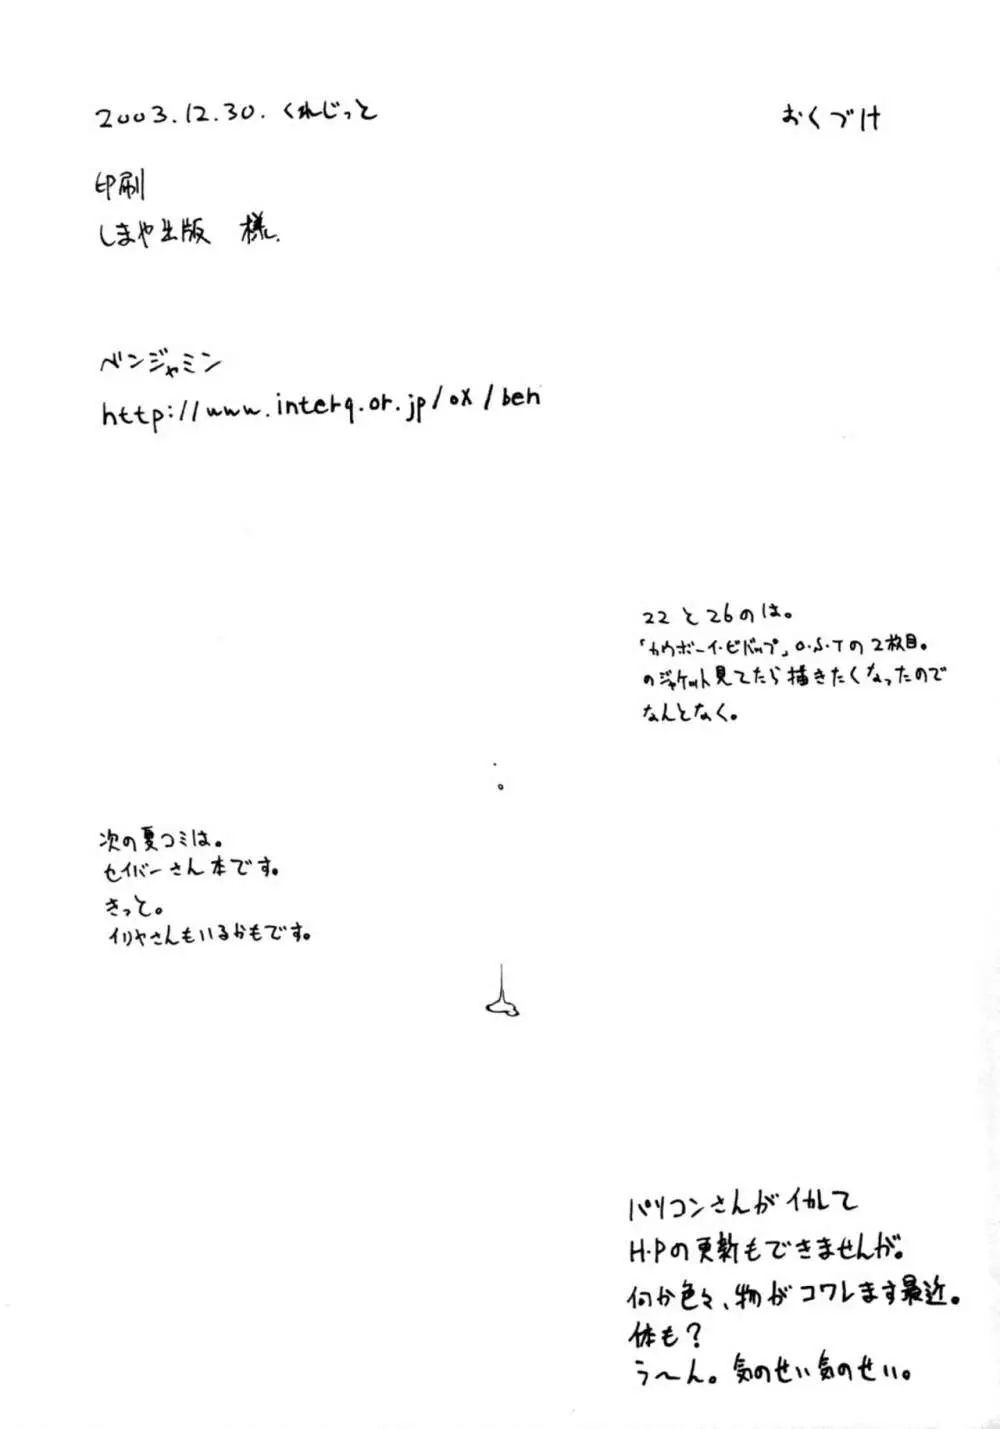 おくづけ
2003.12.30. くれじっと
印刷
しまや出版 様。
ベンジャミン
http://www.interq.or.jp/ox/ben
22と26のは。
「カウボーイ・ビバップ」O・S・Tの2枚目。
のジャケット見てたら描きたくなったので
なんとなく。
次の夏コミは。
セイバーさん本です。
きっと。
イリヤさんもいるかもです。
パソコンさんがイカレて
H・Pの更新もできませんが。
何か色々、物がコワレます最近。
体も?
う〜ん。気のせい気のせい。